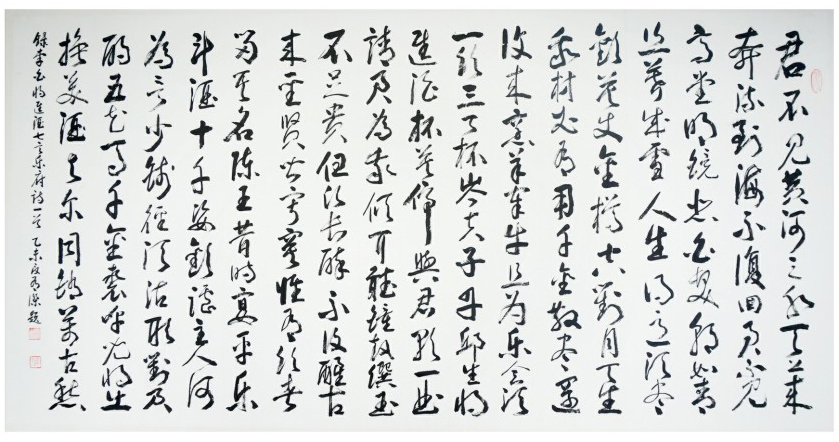 君不见黄河之水天上来
奔流到海不復回君不见
高堂明镜悲白发朝如青
丝暮成雪人生得意须尽
歡莫使金樽空對月天生
我材必有用千金散尽還
復来烹羊宰牛且为乐会须
一飲三百杯岑夫子丹邱生将
進酒杯莫停與君歌一曲
請君为我倾耳聽鐘鼓饌玉
不足贵但願长醉不復醒古
来聖賢皆寂寞惟有飲者
留其名陈王昔時宴平乐
斗酒十千恣歡謔主人何
为言少钱径须沽取對君
酌五花马千金裘呼兒将出
换美酒与尔同銷萬古愁
錄李白将進酒七言乐府詩一首 乙未夏